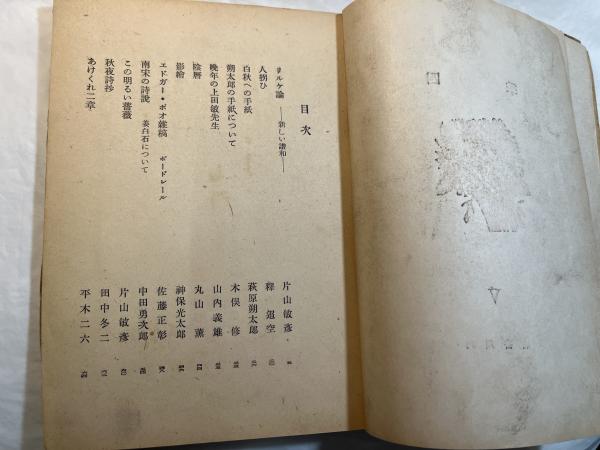 目次
リルケ論 ——新しい諧和—— 片山敏彦
人拐ひ 釋迢空
白秋への手紙 萩原朔太郎
朔太郎の手紙について 木俣修
晩年の上田敏先生 山内義雄
陰暦 丸山薫
影繪 神保光太郎
エドガー・ポオ雜稿 ボードレール 佐藤正彰
南宋の詩說 姜白石について 中田勇次郎
この明るい薔薇 片山敏彦
秋夜詩抄 田中冬二
あけくれ二章 平木二六